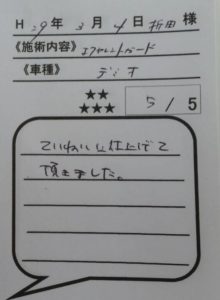 H 29年 3月 4日 折田 様
《施術内容》 エクセレントガード
《車種》 デミオ
★★
★★★ 5 / 5
ていねいに仕上げて
頂きました。